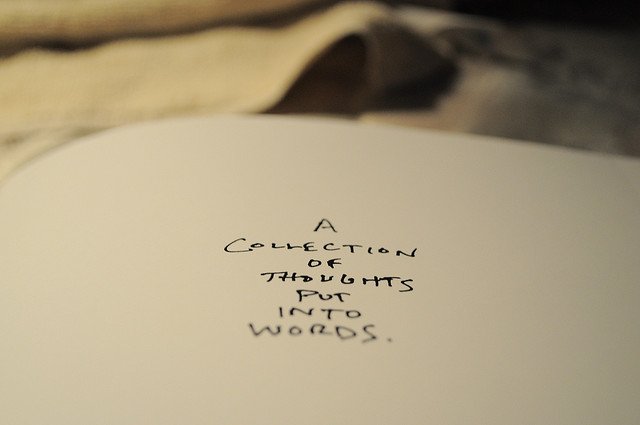 A
COLLECTION
OF
THOUGHTS
PUT
INTO
WORDS.